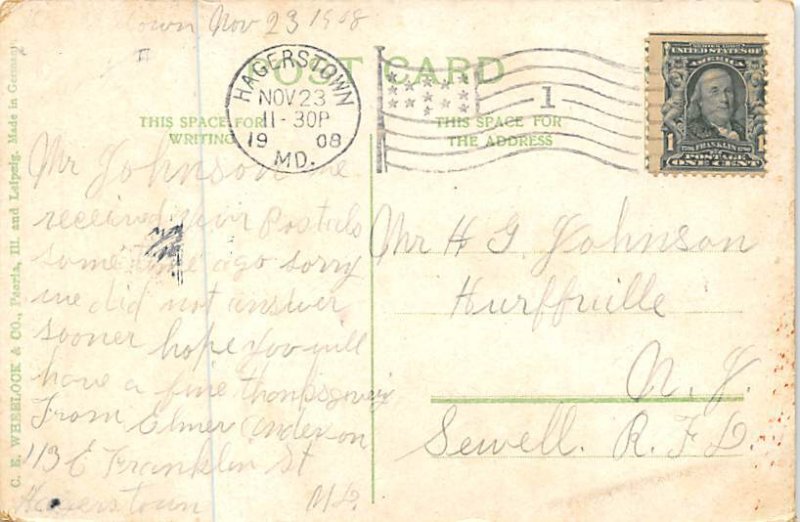 town Nov 23 1908
POST CARD
HAGERSTOWN
NOV 23
11-30P
19 08
MD.
1
SERIES 1902
UNITED STATES OF
AMERICA
1 FRANKLIN 1
POSTAGE
ONE CENT
THIS SPACE FOR
WRITING
THIS SPACE FOR
THE ADDRESS
Mr Johnson we
received your Postals
some time ago sorry
we did not answer
sooner hope you will
have a fine thanksgiveing
From Elmer Anderson
113 E Franklin St
Hagerstown Md.
Mr H G Johnson
Hurffville
N. J.
Sewell. R. F. D.
C. E. WHEELOCK & CO., Peoria, Ill. and Leipzig. Made in Germany